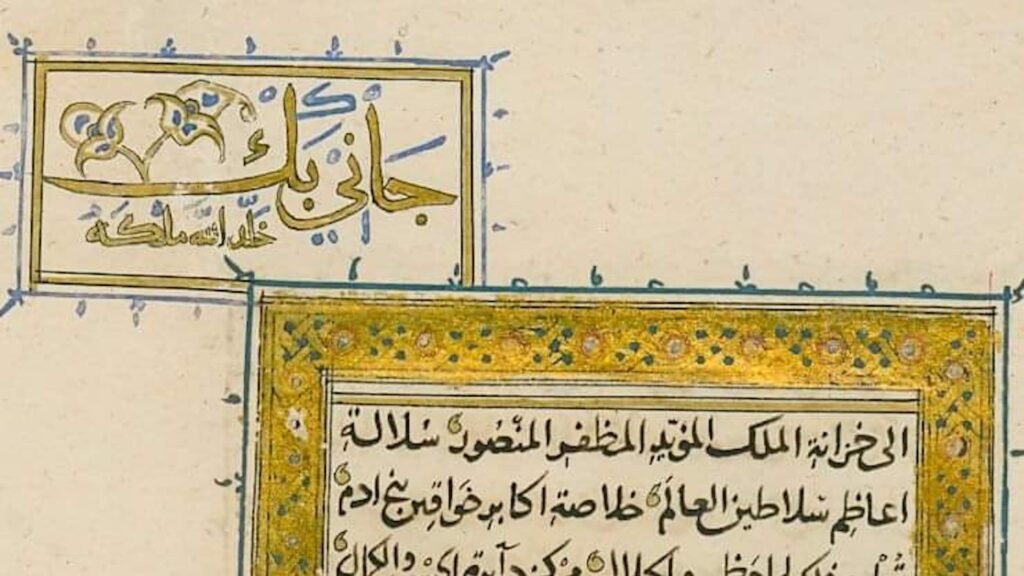 جاني بك
خلد الله ملكه
الى خزانة الملك المؤيد المظفر المنصور سلالة
اعاظم سلاطين العالم خلاصة اكابر خواقين بنى ادم